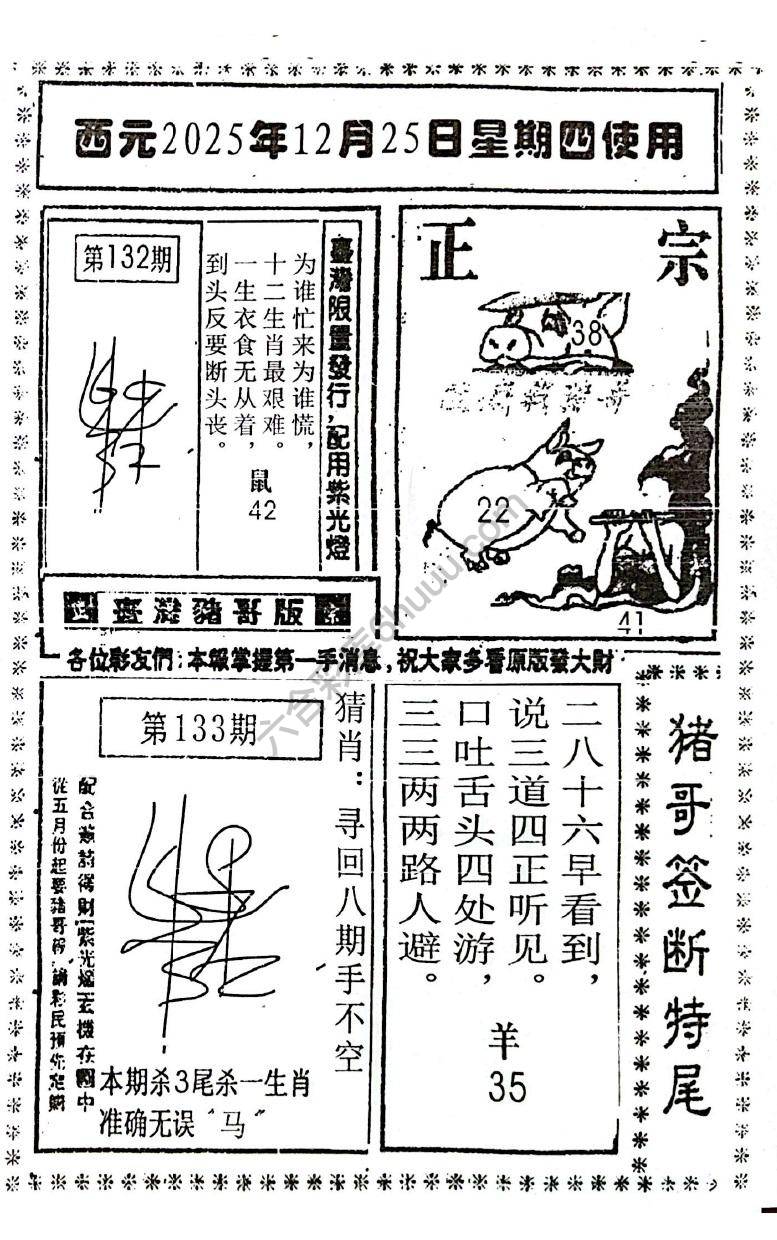 西元2025年12月25日星期四使用
第132期
为谁忙来为谁慌，
十二生肖最艰难。
一生衣食无从着，
到头反要断头丧。
鼠
42
臺灣限量發行，配用紫光燈
正宗
38
22
41
臺灣豬哥版
各位彩友們：本報掌握第一手消息，祝大家多看原版發大財
第133期
猜肖：寻回八期手不空
從五月份起要豬哥報
本期杀3尾杀一生肖
准确无误“马”
二八十六早看到，
说三道四正听见。
口吐舌头四处游，
三三两两路人避。
羊
35
猪哥签断特尾
六合彩库6huuu.com